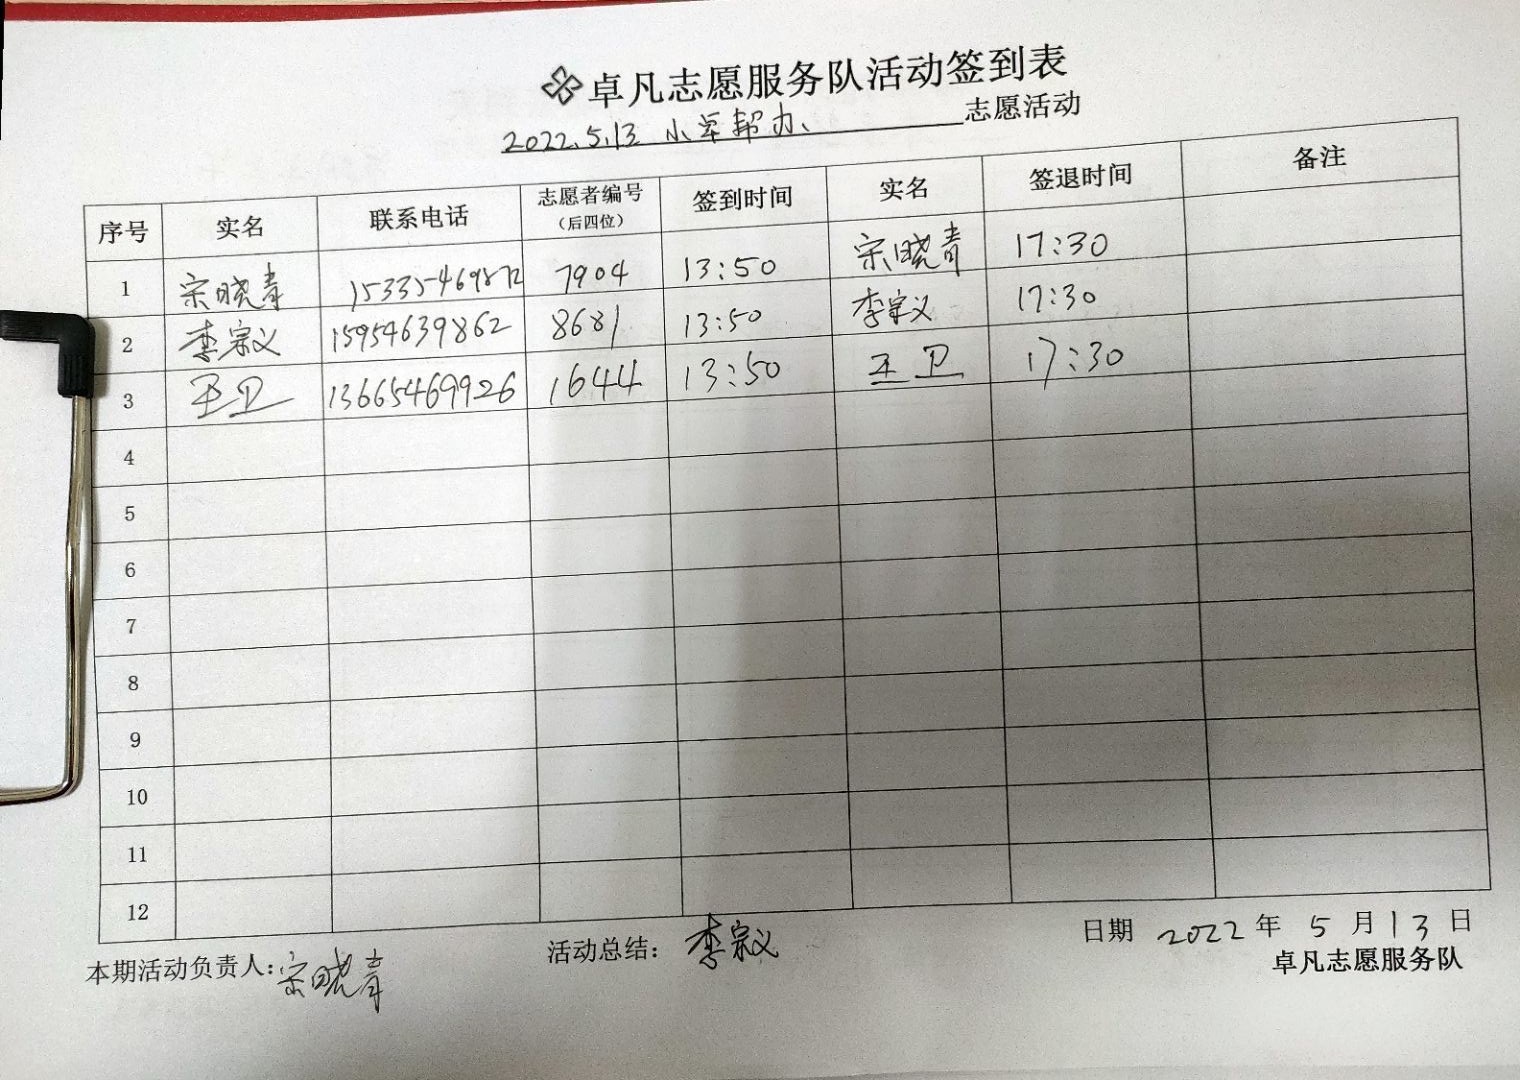 卓凡志愿服务队活动签到表
2022.5.13 小草帮办、志愿活动
序号 实名 联系电话 志愿者编号(后四位) 签到时间 实名 签退时间 备注
1 宋晓青 15335469872 7904 13:50 宋晓青 17:30
2 李宗义 15954639862 8681 13:50 李宗义 17:30
3 王卫 13665469926 1644 13:50 王卫 17:30
4
5
6
7
8
9
10
11
12
本期活动负责人:宋晓青 活动总结:李宗义 日期 2022 年 5 月 13 日
卓凡志愿服务队